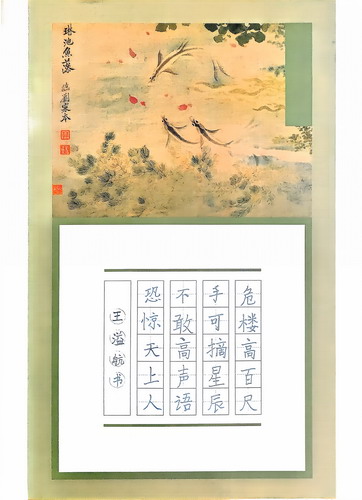 琳池魚藻
臨劉寀本
危楼高百尺
手可摘星辰
不敢高声语
恐惊天上人
王溢航书